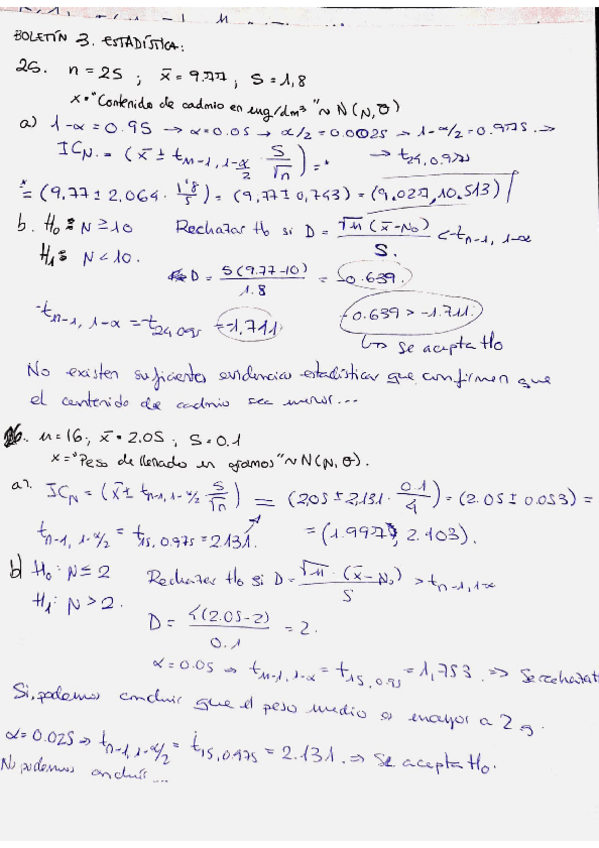 BOLETÍN 3. ESTADÍSTICA:
25. n = 25 ; x̄ = 9.77 ; S = 1,8
x = "Contenido de cadmio en mg/dm³" ~ N(N, σ)
a) 1-α = 0.95 → α = 0.05 → α/2 = 0.0025 → 1-α/2 = 0.975 →
IC_N = (x̄ ± t_{n-1, 1-α/2} · S/√n) = * → t_{24, 0.975}
* = (9,77 ± 2,064 · 1'8/5) = (9,77 ± 0,743) = (9,027, 10.513)
b. H₀: N ≥ 10 Rechazar H₀ si D = √n (x̄ - N₀)/S. < -t_{n-1, 1-α}
H₁: N < 10.
D = 5(9.77-10)/1.8 = -0.639.
-t_{n-1, 1-α} = -t_{24, 0.95} = -1,711 -0.639 > -1.711.
↳ Se acepta H₀
No existen suficientes evidencias estadísticas que confirmen que
el contenido de cadmio sea menor...
26. n = 16; x̄ = 2.05 ; S = 0.1
x = "Peso de llenado en gramos" ~ N(N, σ).
a). IC_N = (x̄ ± t_{n-1, 1-α/2} S/√n) = (2,05 ± 2,131 · 0.1/4) = (2.05 ± 0.053) =
t_{n-1, 1-α/2} = t_{15, 0.975} = 2.131. = (1.997, 2.103).
b) H₀: N ≤ 2 Rechazar H₀ si D = √n · (x̄ - N₀)/S > t_{n-1, 1-α}
H₁: N > 2.
D = 4(2.05-2)/0.1 = 2.
α = 0.05 → t_{n-1, 1-α} = t_{15, 0.95} = 1,753. ⇒ Se rechaza H
Si, podemos concluir que el peso medio es mayor a 2 g.
α = 0.025 → t_{n-1, 1-α/2} = t_{15, 0.975} = 2.131. ⇒ Se acepta H₀.
No podemos concluir...